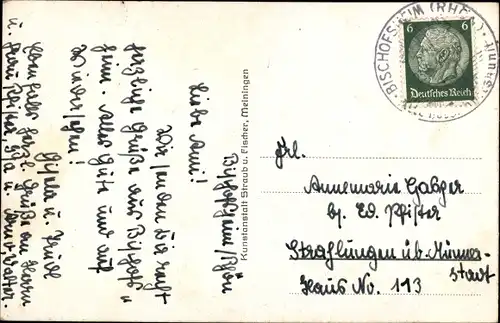 Bischofsheim/Rhön
Liebe Anni!
Wir senden Dir recht
herzliche Grüße aus Bischofs-
heim. Alles Gute und auf
Wiedersehen!
Gisela u. Trudl
Ebenfalls herzl. Grüße an Herrn
u. Frau Pfister, u. Walter.
Kunstanstalt Straub u. Fischer, Meiningen
BISCHOFSHEIM (RHÖN)
6 6
Deutsches Reich
Frl.
Annemarie
by. Ed. Pfister
Strahlungen üb. Münner-
stadt
Haus No. 113